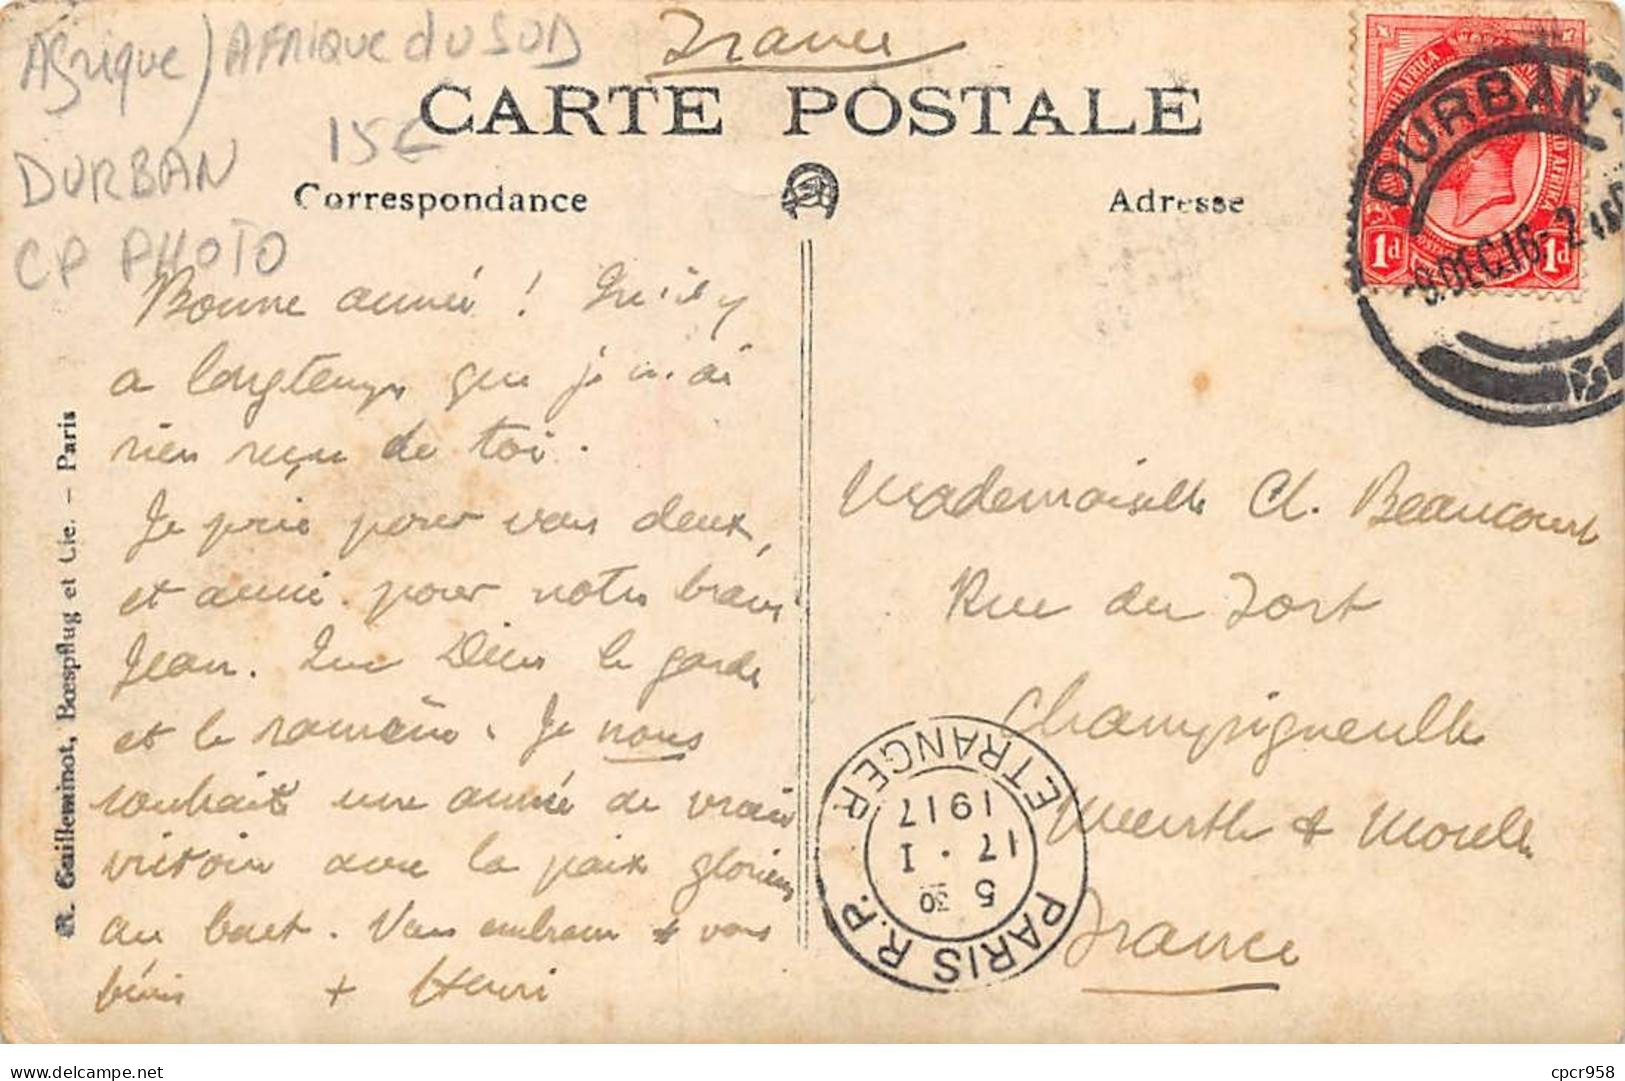 France
Afrique) AFRIQUE du SUD
CARTE POSTALE
15€
DURBAN
CP PHOTO
Correspondance
Adresse
DURBAN
9.DEC.16-2
1d 1d
Bonne année ! Qu'il y
a longtemps que je n'ai
rien reçu de toi.
Je prie pour vous deux,
et aussi pour notre brave
Jean. Que Dieu le garde
et le ramène. Je nous
souhaite une année de vraie
victoire avec la paix glorieuse
au bout. Vous embrasse & vous
bénis + Henri
Mademoiselle Cl. Beaucourt
Rue du Fort
Champigneulle
Meurthe & Moselle
France
PARIS R.P. ETRANGER
5 30
17 . 1
1917
R. Guilleminot, Bœspflug et Cie. – Paris
cpcr958